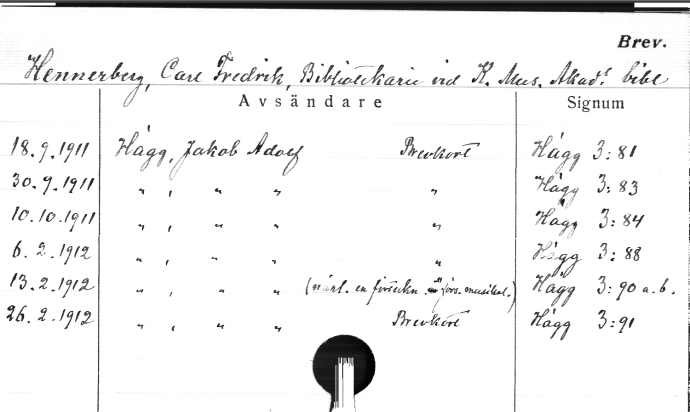 Brev.
Hennerberg, Carl Fredrik, Bibliotekarie vid K. Mus. Akad:s bibl
Avsändare Signum
18.9.1911 Hägg, Jakob Adolf Brevkort Hägg 3:81
30.9.1911 " , " " " Hägg 3:83
10.10.1911 " , " " " Hägg 3:84
6.2.1912 " , " " " Hägg 3:88
13.2.1912 " , " " (närl. en förteckn. förs. musikal.) Hägg 3:90 a.b.
26.2.1912 " , " " Brevkort Hägg 3:91